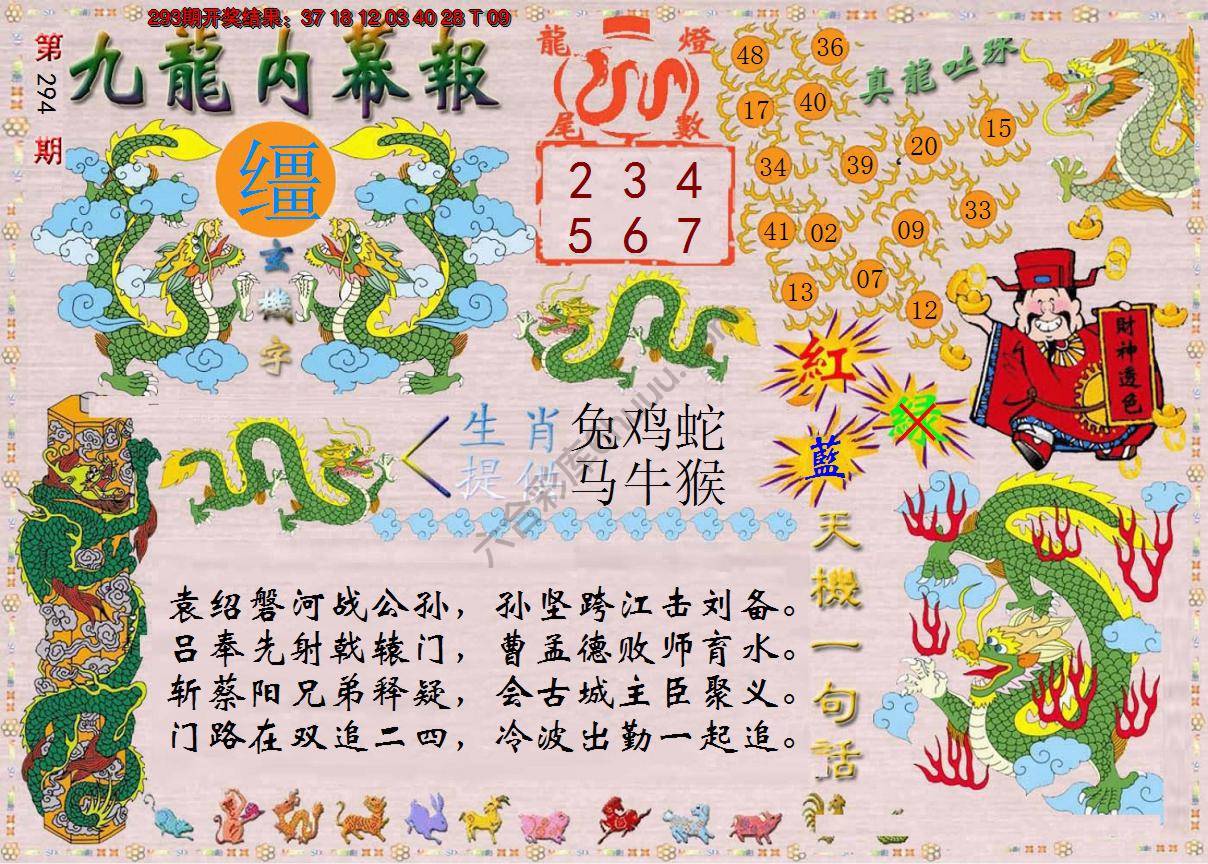 293期开奖结果：37 18 12 03 40 28 T 09
第294期
九龍内幕報
缰
玄機字
龍燈
尾數
2 3 4
5 6 7
真龍吐珠
48 36
17 40
15
20
34 39
33
41 02 09
07
13
12
財神透色
紅
绿
藍
生肖 兔鸡蛇
提供 马牛猴
天機一句話
袁绍磐河战公孙，孙坚跨江击刘备。
吕奉先射戟辕门，曹孟德败师育水。
斩蔡阳兄弟释疑，会古城主臣聚义。
门路在双追二四，冷波出勤一起追。